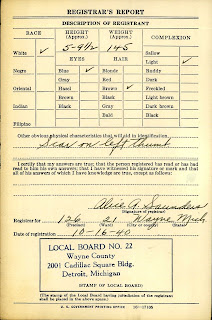 REGISTRAR'S REPORT
DESCRIPTION OF REGISTRANT
RACE HEIGHT (Approx.) WEIGHT (Approx.) COMPLEXION
White ✓ 5-9½ 145 Sallow
EYES HAIR Light ✓
Negro Blue ✓ Blonde Ruddy
Gray Red Dark
Oriental Hazel Brown ✓ Freckled
Brown Black Light brown
Indian Black Gray Dark brown
Bald Black
Filipino
Other obvious physical characteristics that will aid in identification
Scar on left thumb
I certify that my answers are true; that the person registered has read or has had
read to him his own answers; that I have witnessed his signature or mark and that
all of his answers of which I have knowledge are true, except as follows:
Alice A. Saunders
(Signature of registrar)
Registrar for 126 21 Wayne Mich
(Ward) (City or county) (State)
Date of registration 10-16-40
LOCAL BOARD NO. 22
Wayne County
2001 Cadillac Square Bldg.
Detroit, Michigan
(STAMP OF LOCAL BOARD)
(The stamp of the Local Board having jurisdiction of the registrant
shall be placed in the above space)
U. S. GOVERNMENT PRINTING OFFICE